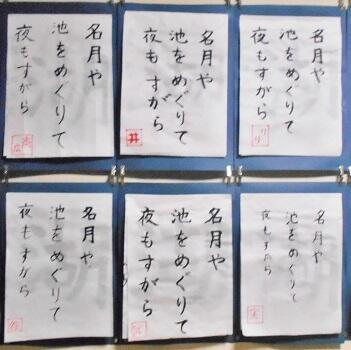 名月や
池をめぐりて
夜もすがら
名月や
池をめぐりて
夜もすがら
井
名月や
池をめぐりて
夜もすがら
リリ
名月や
池をめぐりて
夜もすがら
名月や
池をめぐりて
夜もすがら
名月や
池をめぐりて
夜もすがら